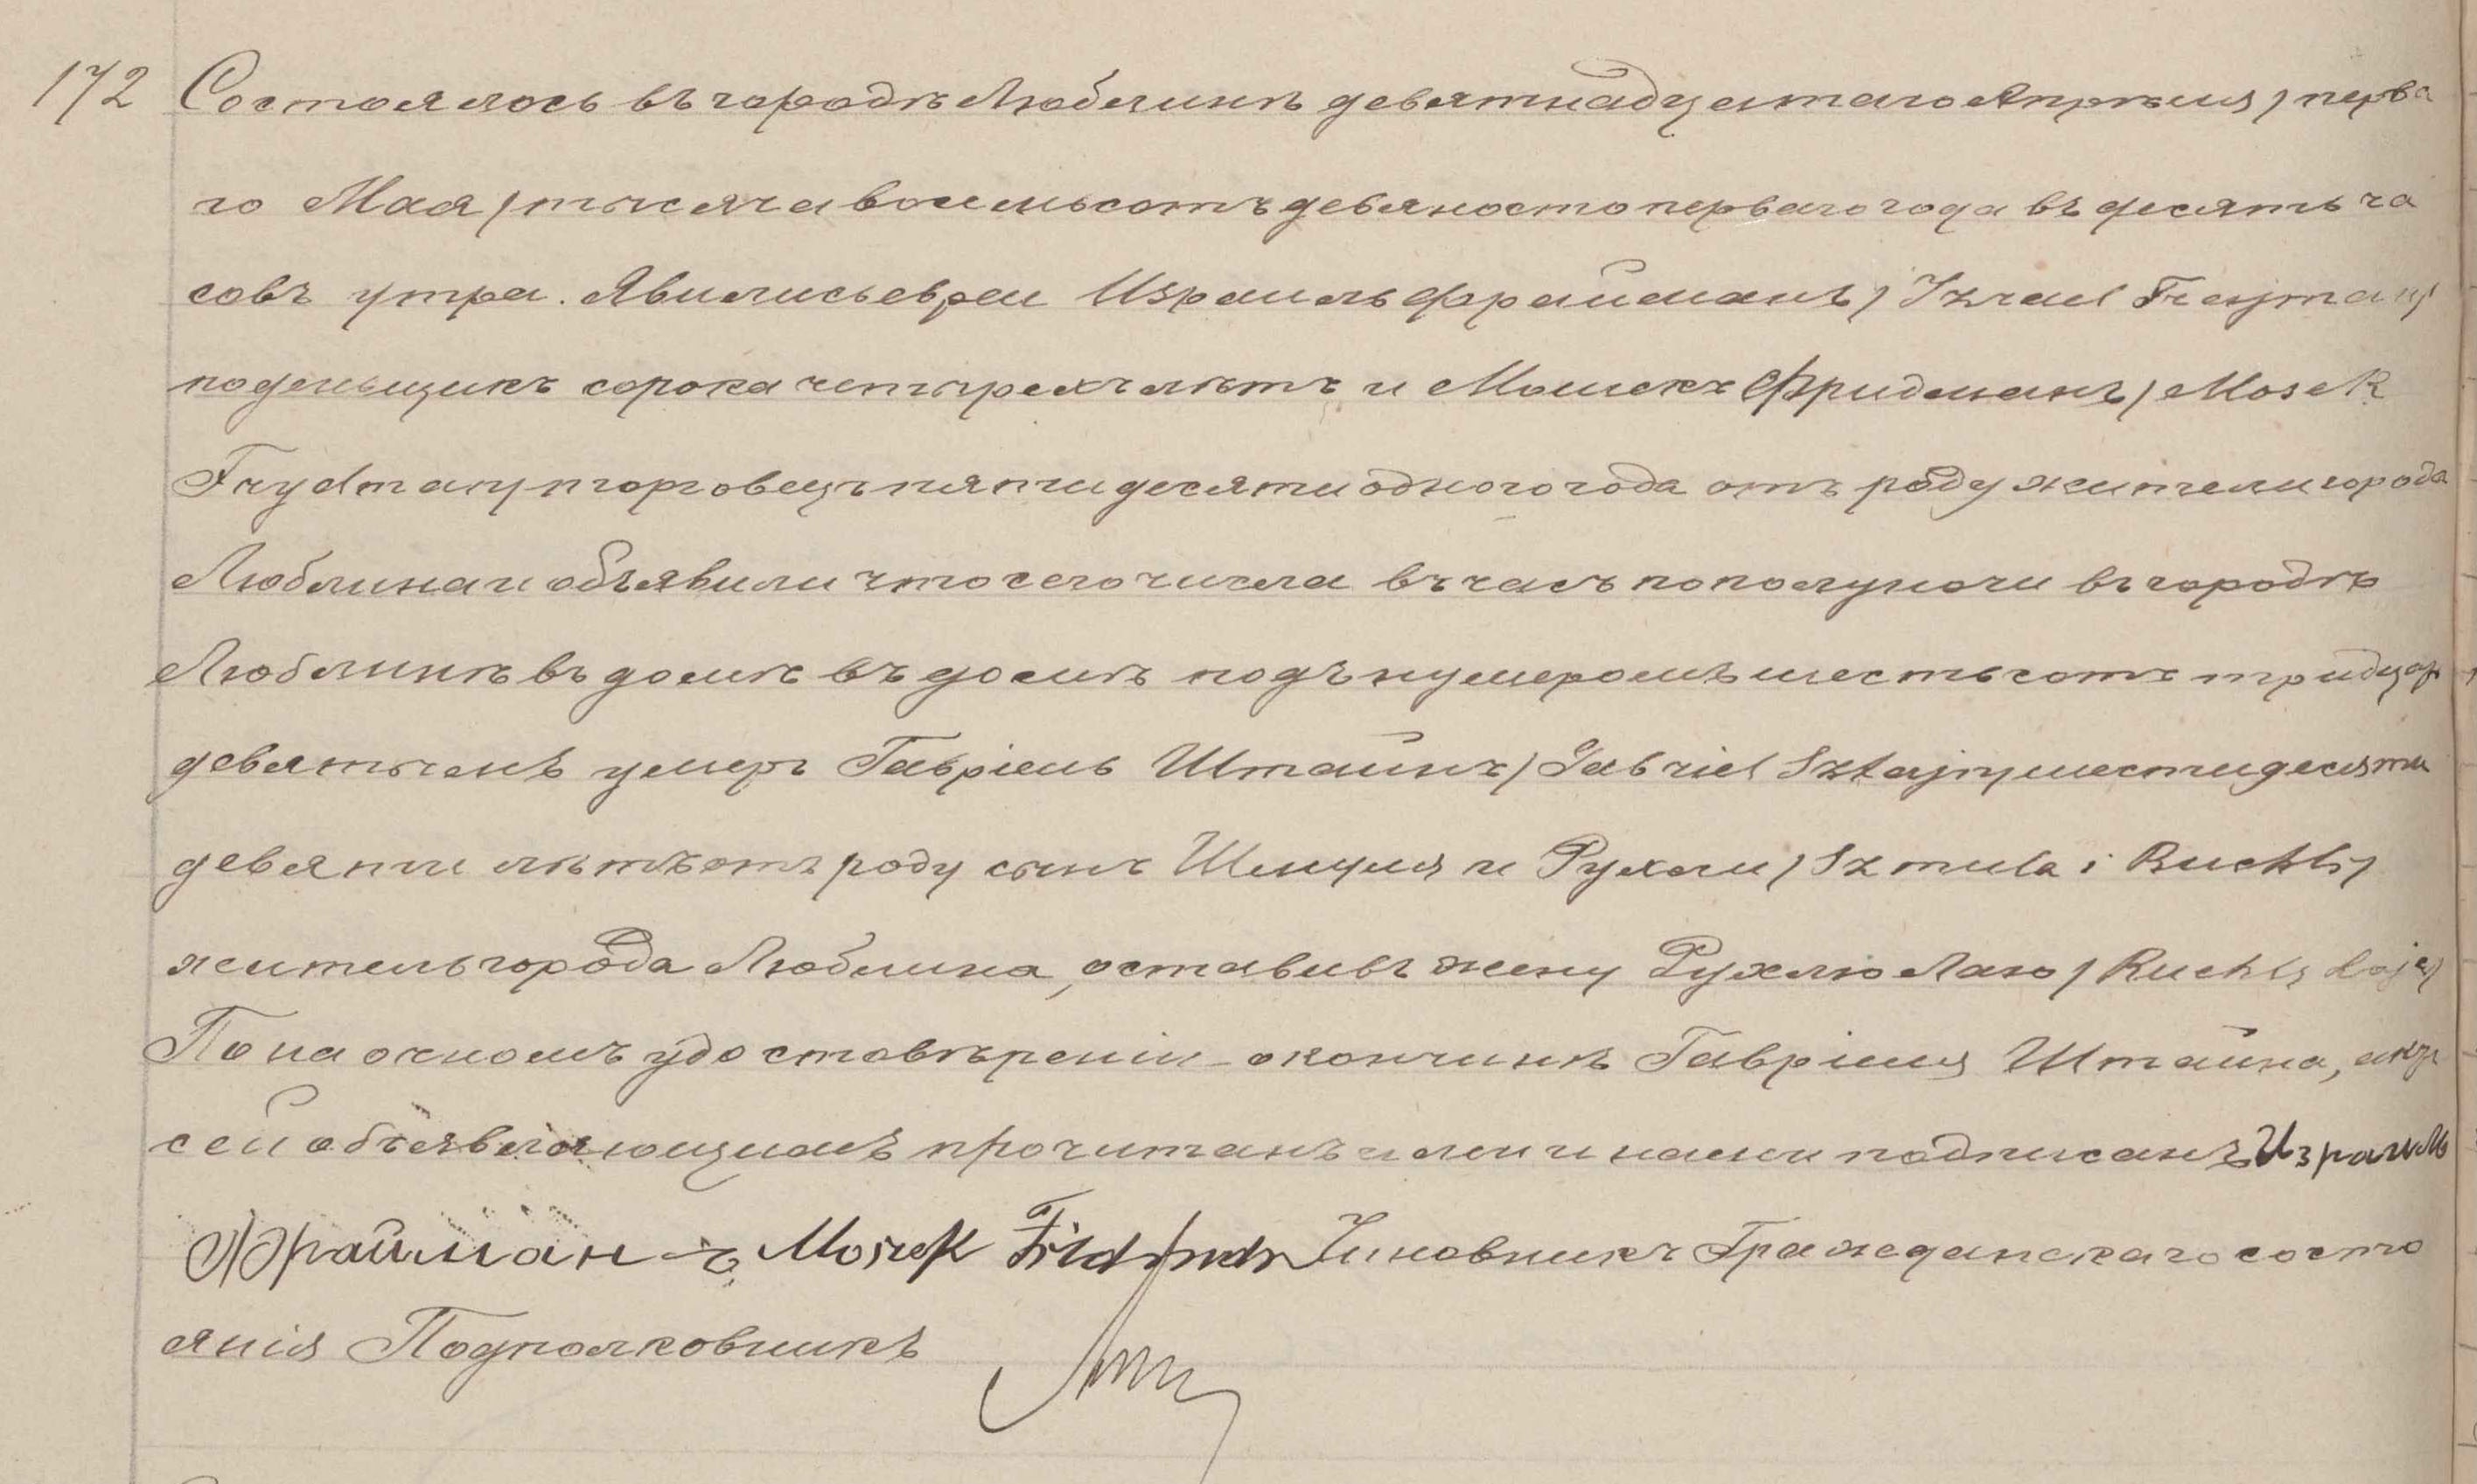 172 Состоялось въ городѣ Люблинѣ девятнадцатаго Апрѣля / перва
го Мая / тысяча восемьсотъ девяносто перваго года въ десять ча
совъ утра. Явились евреи Израиль Фрайманъ / Izrael Frajman /
поденьщикъ сорока четырехъ лѣтъ и Мошекъ Фридманъ / Mosek
Frydman / торговецъ пятидесяти одного года отъ роду жители города
Люблина и объявили что сего числа въ часъ пополуночи въ городѣ
Люблинѣ въ домѣ въ домѣ подъ нумеромъ шестьсотъ тридцат
девятымъ умеръ Габріель Штайнъ / Gabriel Sztajn / шестидесяти
девяти лѣтъ отъ роду сынъ Шмуля и Рухли / Szmula i Ruchli /
житель города Люблина, оставивъ жену Рухлю Лаю / Ruchlę Laję /
По наочномъ удостовѣреніи окончинѣ Габріеля Штайна, актъ
сей объявляющимъ прочитанъ ими и нами подписанъ Израиль
Фрайманъ Mosek Чиновникъ Гражданскаго состо
янія Подполковникъ